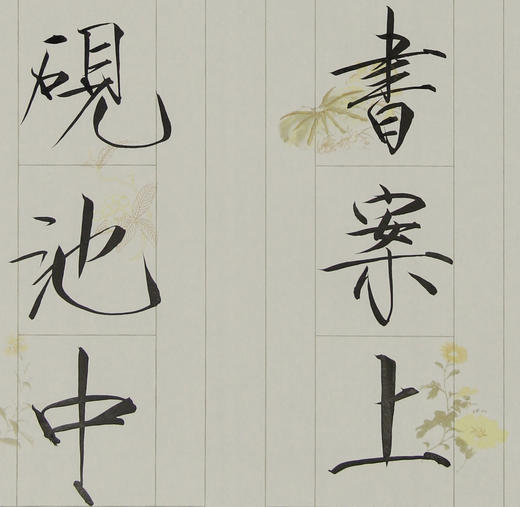 書案上
硯池中